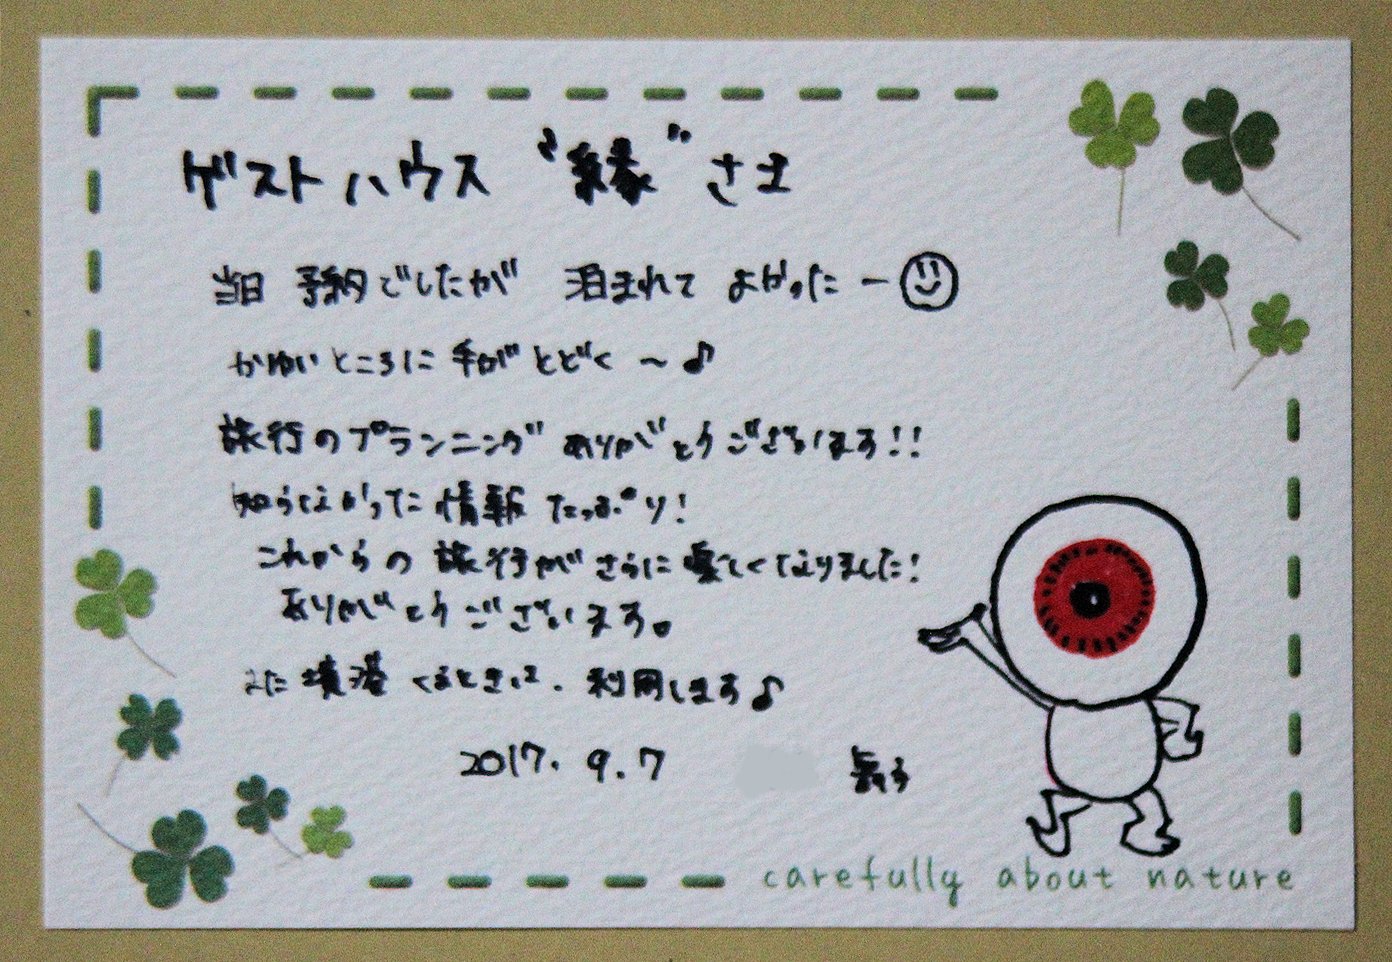 ゲストハウス “縁” さま
当日 予約でしたが 泊まれて よかったー
かゆいところに 手がとどく ～♪
旅行のプランニング ありがとうございます!!
知らなかった 情報 たっぷり!
これからの 旅行が さらに 楽しくなりました!
ありがとうございます。
また 境港 くるときは、利用します♪
2017. 9. 7
carefully about nature